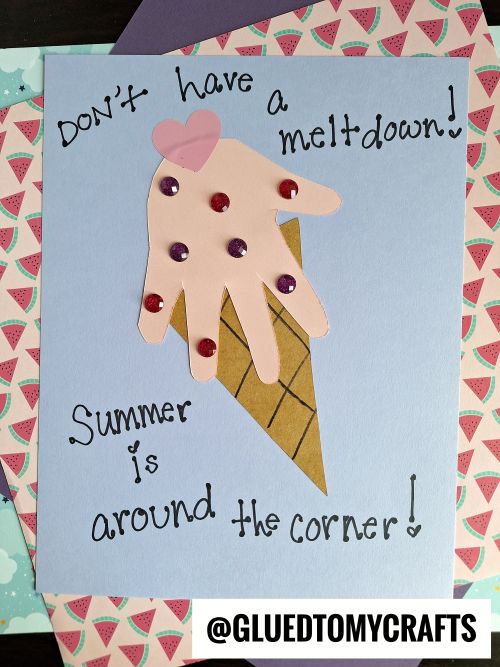 DON't have a
meltdown!
Summer
is
around the corner!
@GLUEDTOMYCRAFTS